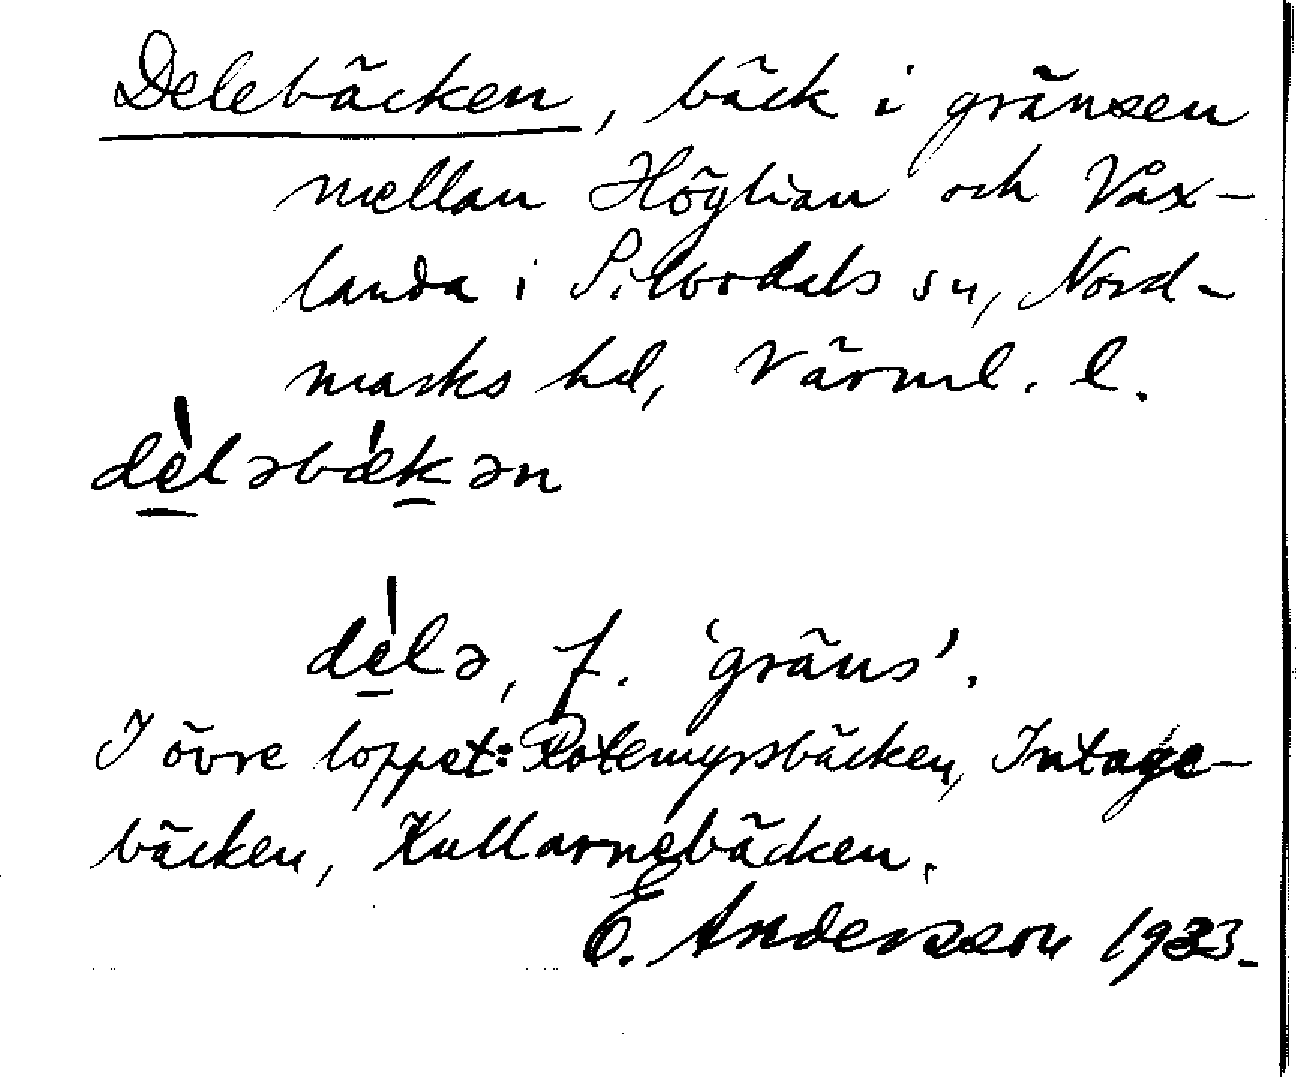 Delebäcken, bäck i gränsen
mellan Höglian och Vax-
landa i Silbodals sn, Nord-
marks hd, Värml. l.
dèləbækən
dèlə, f. 'gräns'.
I övre loppet: Rotemyrsbäcken, Intage-
bäcken, Kullarnebäcken.
E. Andersson 1933.